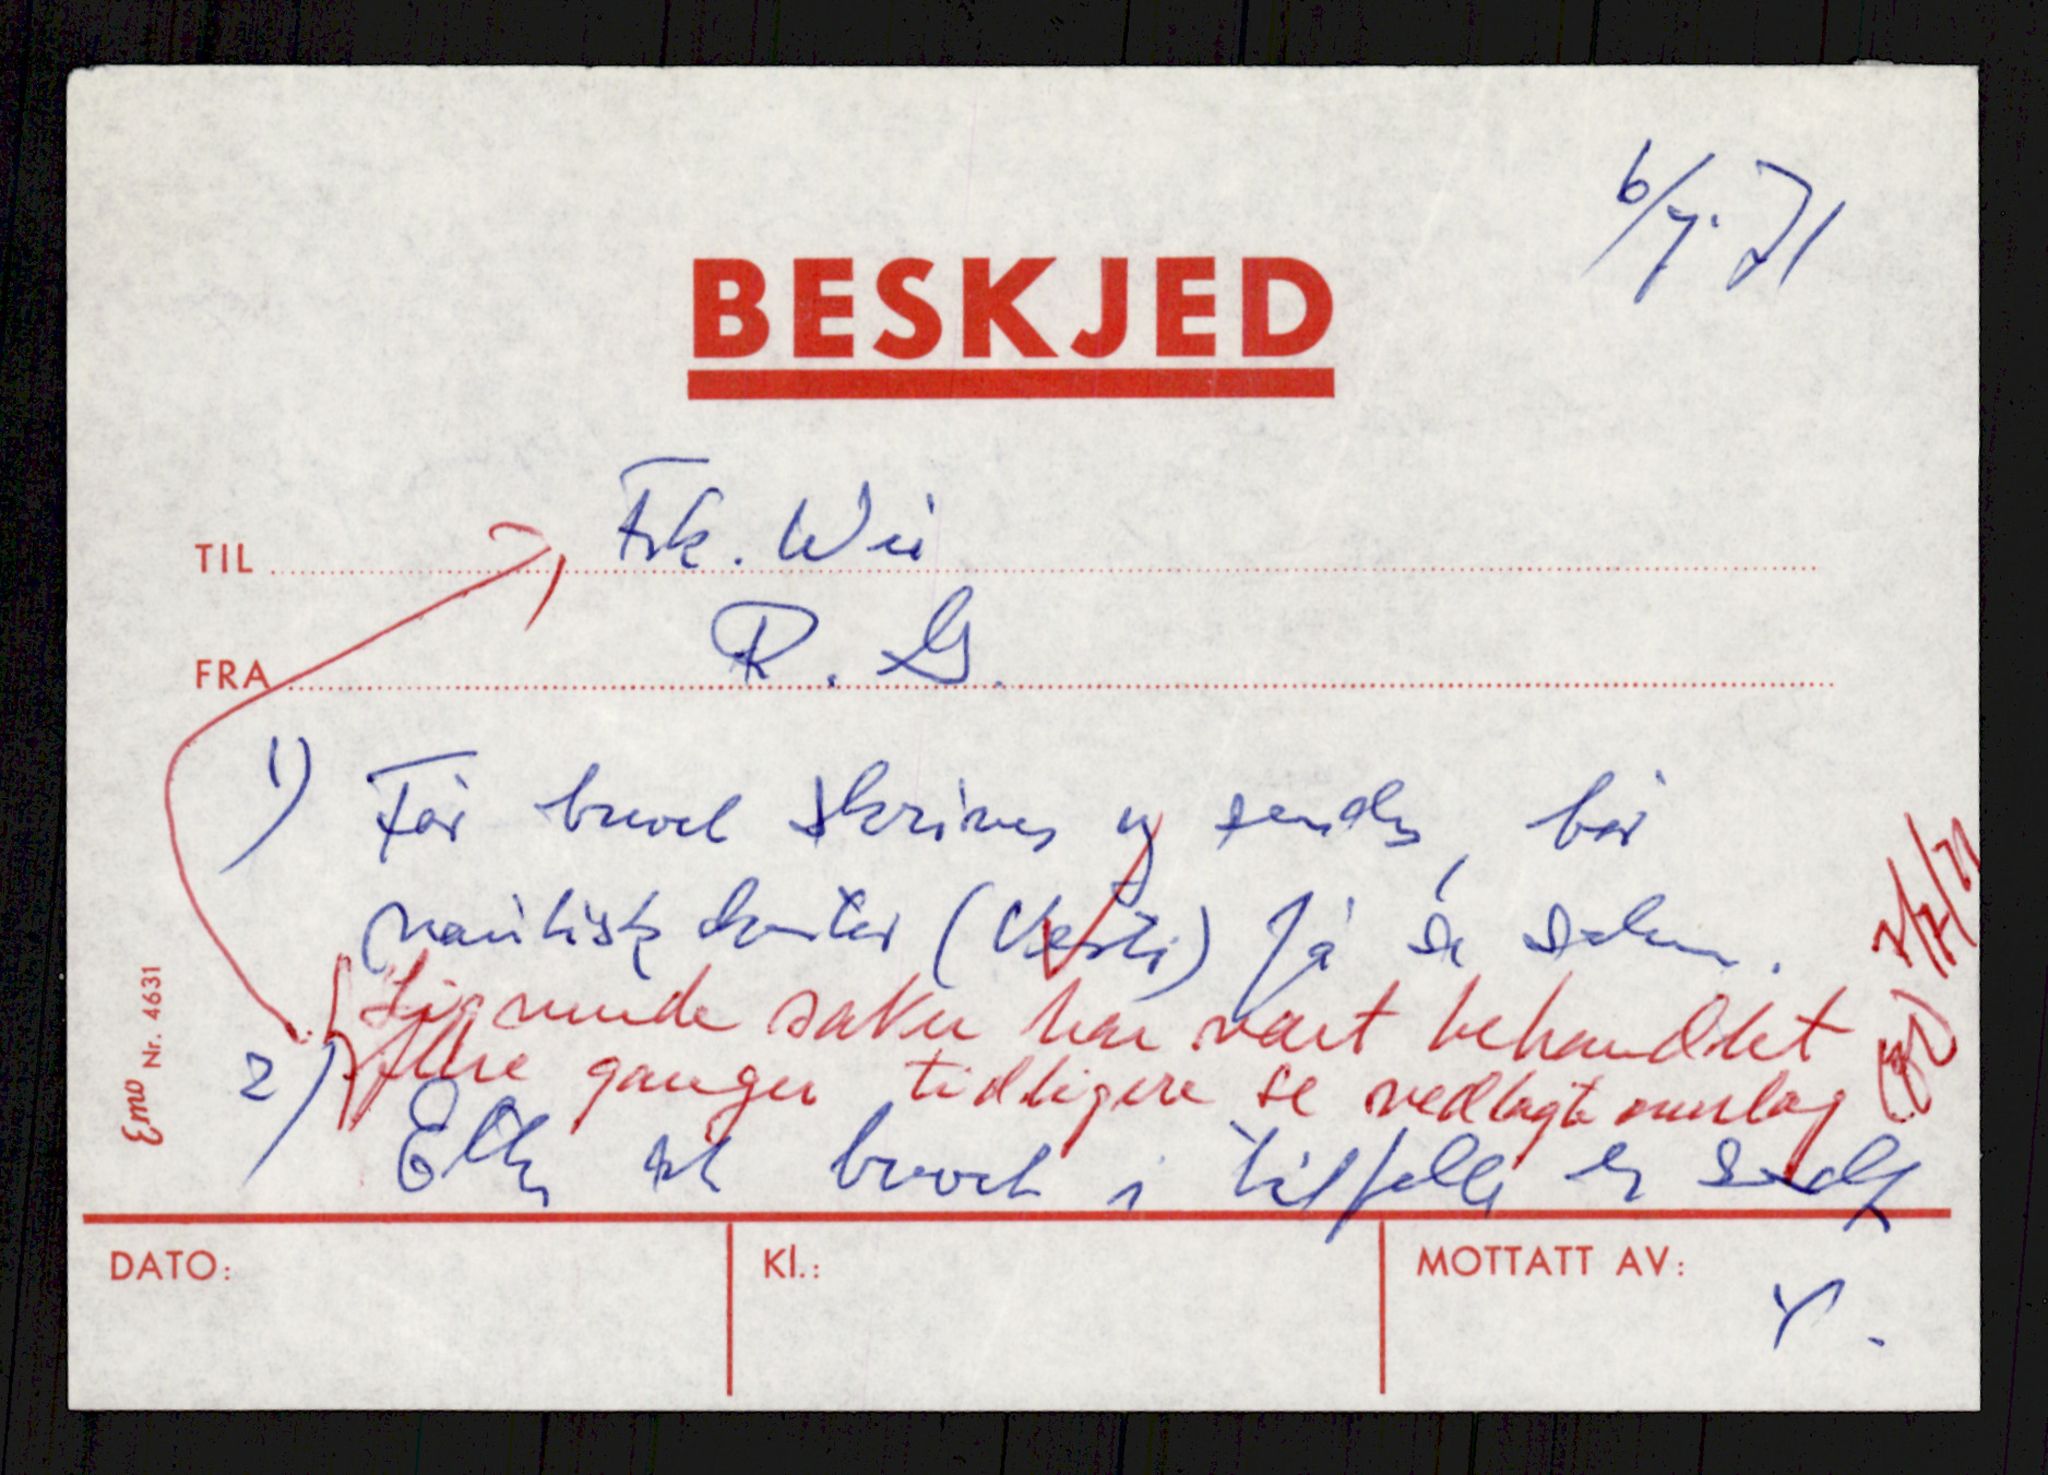 6/7. 71
BESKJED
TIL Frk. Wii
FRA R. G.
1) Før brevet skrives og sendes, bør
nautisk kontor (Vesti) få se saken.
Lignende saker har vært behandlet
flere ganger tidligere se vedlagte omslag
7/7/71
2) Ellers et brevet i tilfelle er sendt
Emo Nr. 4631
DATO:
Kl.:
MOTTATT AV: